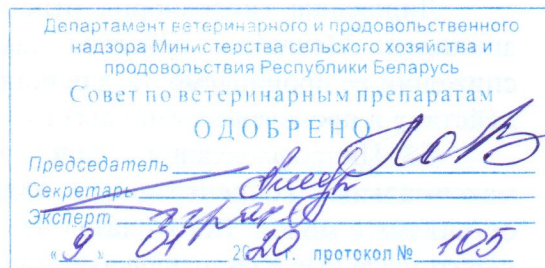 Департамент ветеринарного и продовольственного
надзора Министерства сельского хозяйства и
продовольствия Республики Беларусь
Совет по ветеринарным препаратам
ОДОБРЕНО
Председатель
Секретарь
Эксперт
«9» 01 2020 г. протокол № 105